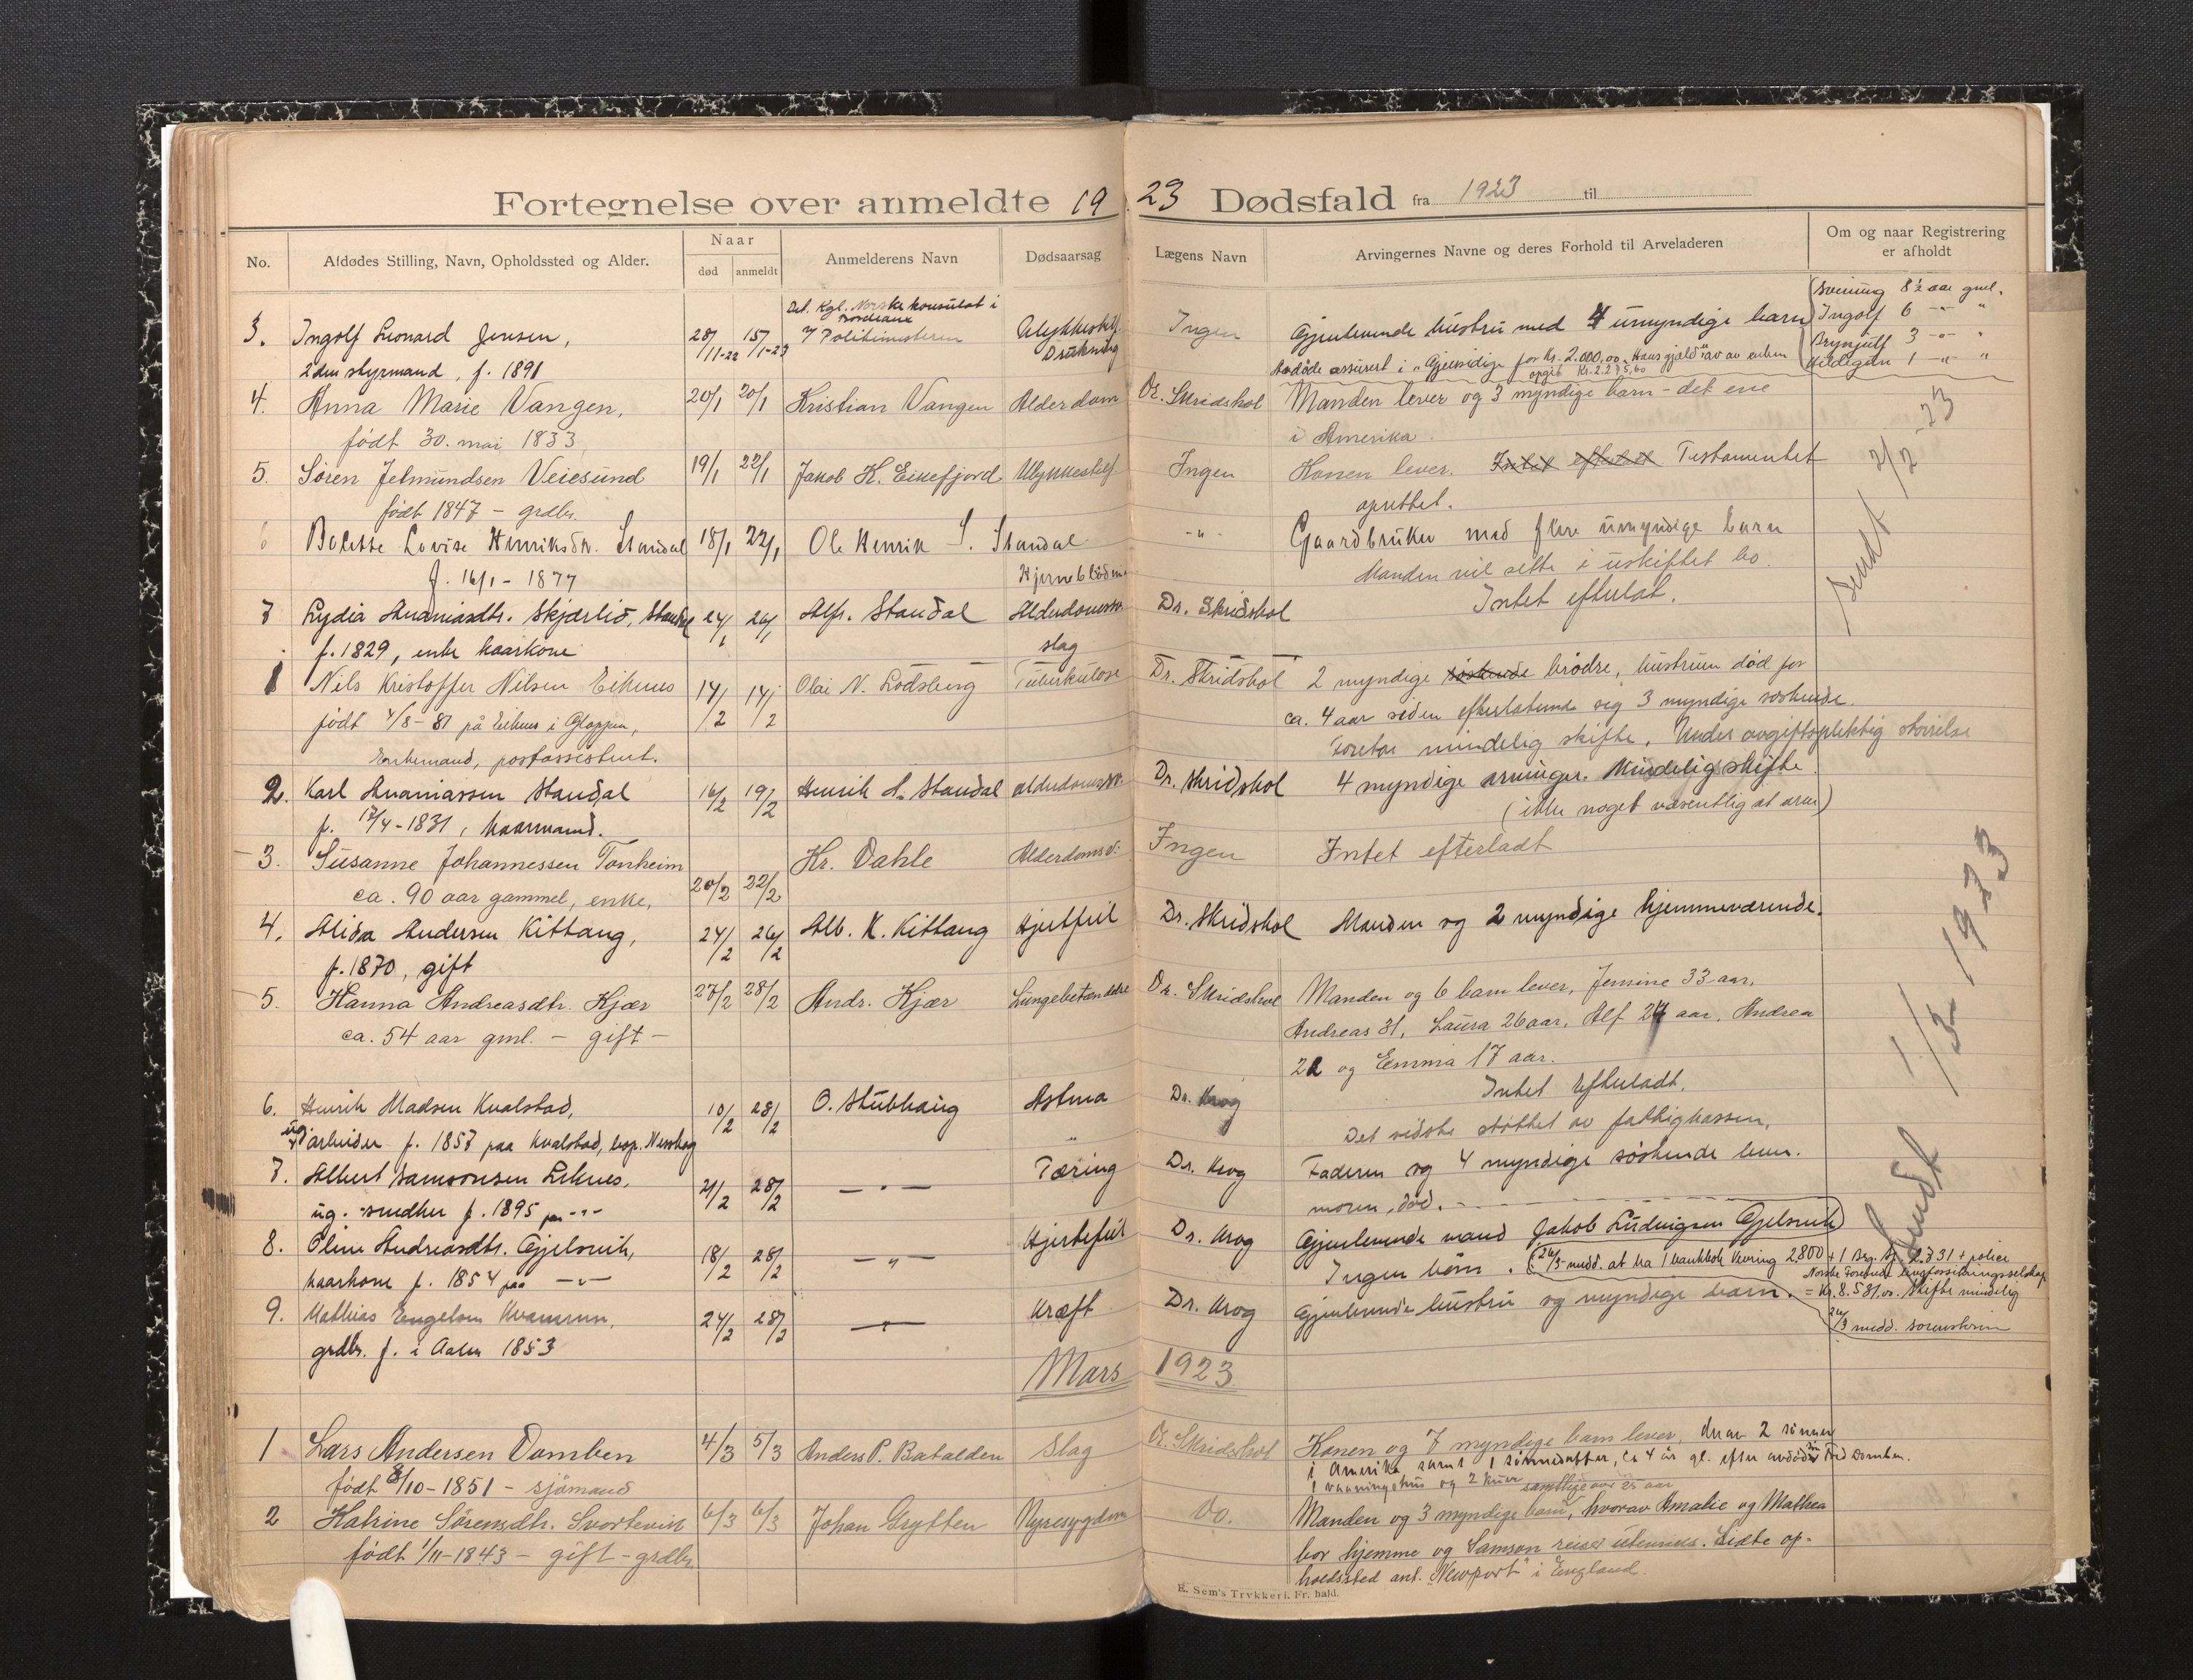 Fortegnelse over anmeldte 19 23 Dødsfald fra 1923 til
No.
Afdødes Stilling, Navn, Opholdssted og Alder.
Naar
død
anmeldt
Anmelderens Navn
Dødsaarsag
Lægens Navn
Arvingernes Navne og deres Forhold til Arveladeren
Om og naar Registrering
er afholdt
Det Kgl. Norske konsulat i
Bordeaux
3. Ingolf Leonard Jensen, 28/11-22 15/1-23 Politimesteren Ulykkestilf. Ingen Gjenlevende hustru med 4 umyndige barn
2den styrmand, f. 1891 Drukning
8½ aar gml.
Ingolf 6 -"- "
Brynjulf 3 -"- "
1 -"- "
Avdøde assurert i "Gjensidige" for Kr. 2.000,00.
opgit Kr. 2.275,60
4. Anna Marie Vangen, 20/1 20/1 Kristian Vangen Alderdom Dr. Skridshol Manden lever og 3 myndige barn - det ene
født 30. mai 1833 i Amerika.
5. Søren Jetmundsen Veiesund 19/1 22/1 Jakob K. Eikefjord Ulykkestilf Ingen Konen lever. Intet efterlat Testamentet
født 1847 - grdbr. oprettet.
6 Bolette Lovise Henriksdtr. Standal 18/1 22/1 Ole Henrik S. Standal -"- Gaardbruker med flere umyndige barn
f. 16/1 - 1877 Hjerneblødning Manden vil sitte i uskiftet bo.
7 Lydia Ananiasdtr. Skjærlid, Standal 24/1 26/1 Alfr. Standal Alderdomssv. Dr. Skridshol Intet efterlat.
f. 1829, enke kaarkone slag
sendt 2/2-23
1 Nils Kristoffer Nilsen Eikenes 14/2 14/2 Olai N. Lodsberg Tuberkulose Dr. Skridshol 2 myndige søskende brødre, hustruen død for
født 4/8-81 på Eikenes i Gloppen, ca. 4 aar siden efterlatende sig 3 myndige søskende.
Enkemand, postassistent. Foretar mindelig skifte. Under avgiftspliktig størrelse
2. Karl Ananiassen Standal 16/2 19/2 Henrik A. Standal alderdomssv. Dr. Skridshol 4 myndige arvinger. Mindelig skifte
f. 17/4-1831, kaarmand. (ikke noget væsentlig at arve)
3. Susanne Johannessen Tonheim 20/2 22/2 Kr. Dahle Alderdomsv. Ingen Intet efterladt
ca. 90 aar gammel, enke,
4. Alida Andersen Kittang, 24/2 26/2 Alb. K. Kittang Hjertfeil Dr. Skridshol Manden og 2 myndige hjemmeværende.
f. 1870, gift
5. Hanna Andreasdtr. Kjær 27/2 28/2 Andr. Kjær Lungebetændelse Dr. Skridshol Manden og 6 barn lever, Jensine 33 aar,
ca. 54 aar gml. - gift - Andreas 31, Laura 26 aar, Alf 24 aar, Andrea
22 og Emma 17 aar.
6. Henrik Madsen Kvalstad, 10/2 28/2 O. Stubhaug Astma Dr. Krog Intet efterladt.
ug. arbeider f. 1857 paa Kvalstad, Det sidste støttet av fattigkassen.
7. Albert Samsonsen Liknes, 21/2 28/2 -"- Tæring Dr. Krog Faderen og 4 myndige søskende lever.
ug. snedker f. 1895 paa -"- moren død.
8. Oline Andreasdtr. Gjelsvik, 18/2 28/2 -"- Hjertefeil Dr. Krog Gjenlevende mand Jakob Ludvigsen Gjelsvik
kaarkone f. 1854 paa -"- Ingen børn.
Skifte mindelig
26/3 medd. sorenskrivn
9. Mathias Engelsen Kvammen, 24/2 28/2 -"- Kræft Dr. Krog Gjenlevende hustru og myndige barn.
grdbr. f. i Aalen 1853
sendt 1/3 1923
Mars 1923
1 Lars Andersen Domben 4/3 5/3 Anders P. Batalden Slag Dr. Skridshol Konen og 7 myndige barn lever, derav 2 sønner
født 8/10-1851 - sjømand i Amerika samt 1 sønnedatter, ca 4 år gl. efter avdøde
1 vaaningshus og 2 kuer samtlige over 25 aar
2 Katrine Sørensdtr. Svortevik 6/3 6/3 Johan Grytten Nyresygdom Do. Manden og 3 myndige barn, hvorav Amalie og Mathea
født 1/11-1843 - gift - grdbr. bor hjemme og Samson reiser utenriks. Sidste op-
holdssted ant. "Newport" i England.
E. Sem's Trykkeri, Fr. hald.